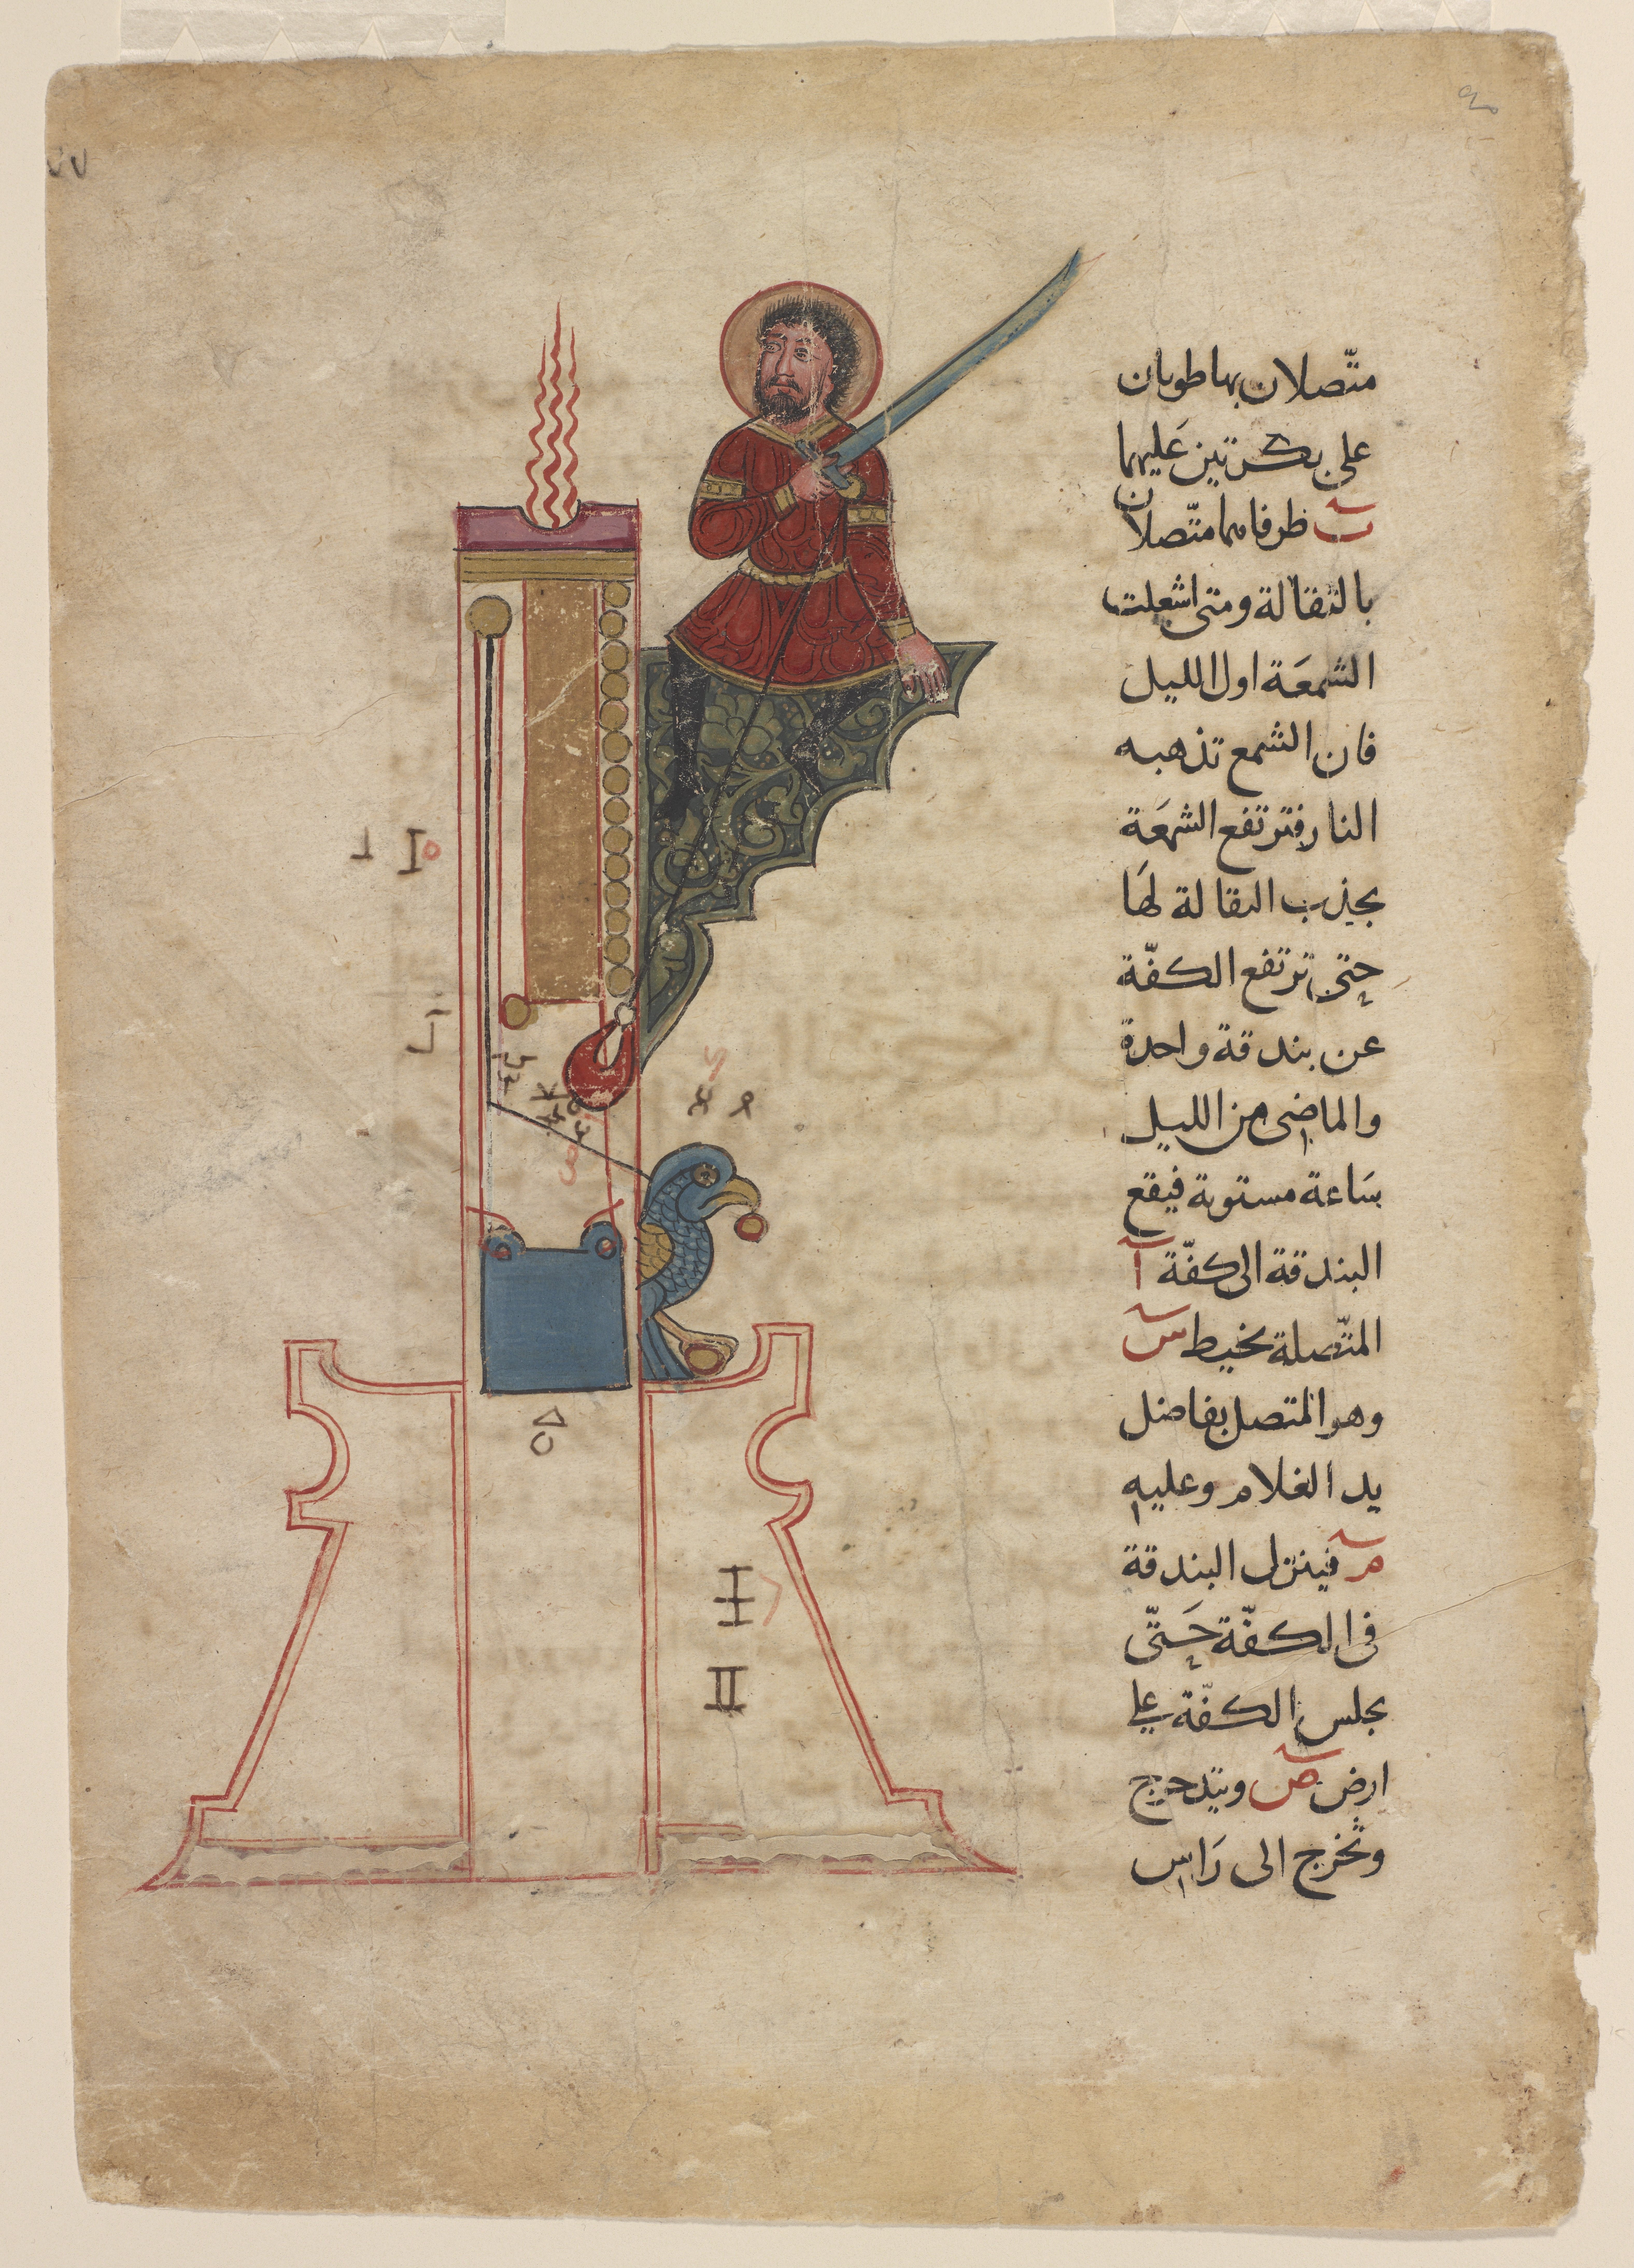 متّصلان بها طوبان
على بكرتين عليهما
ت ظرفاهما متّصلان
بالثقالة ومتى اشعلت
الشمعة اول الليل
فان الشمع تذهبه
النار فترتفع الشمعة
بجذب الثقالة لها
حتى ترتفع الكفّة
عن بندقة واحدة
والماضى من الليل
ساعة مستوية فيقع
البندقة الى كفّة آ
المتّصلة بخيط س
وهو المتصل بفاضل
يد الغلام وعليه
م فينزل البندقة
فى الكفّة حتّى
يجلس الكفّة على
ارض ص ويتدحرج
وتخرج الى راس